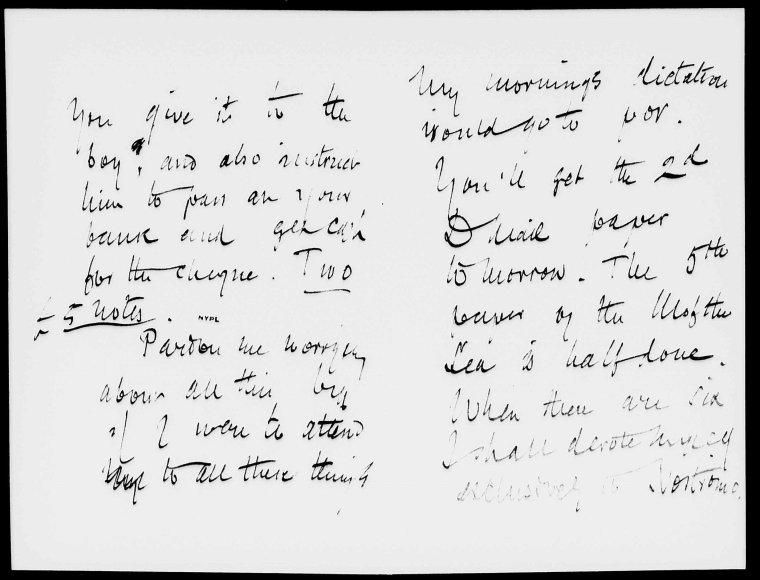 You give it to the
boy; and also instruct
him to pass at your
bank and get cash
for the cheque. Two
£5 notes.
NYPL
Pardon me worrying
about all this but
if I were to attend
to all these things
My mornings dictation
would go to pot.
You'll get the 2d
D Mail paper
to morrow. The 5th
paper of the M of the
Sea is half done.
When there are six
I shall devote myself
exclusively to Nostromo.